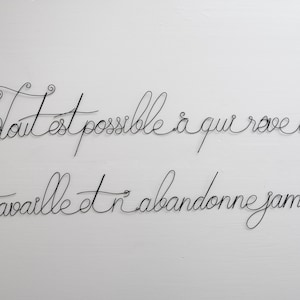 Tout est possible à qui rêve
availle et n'abandonne jam